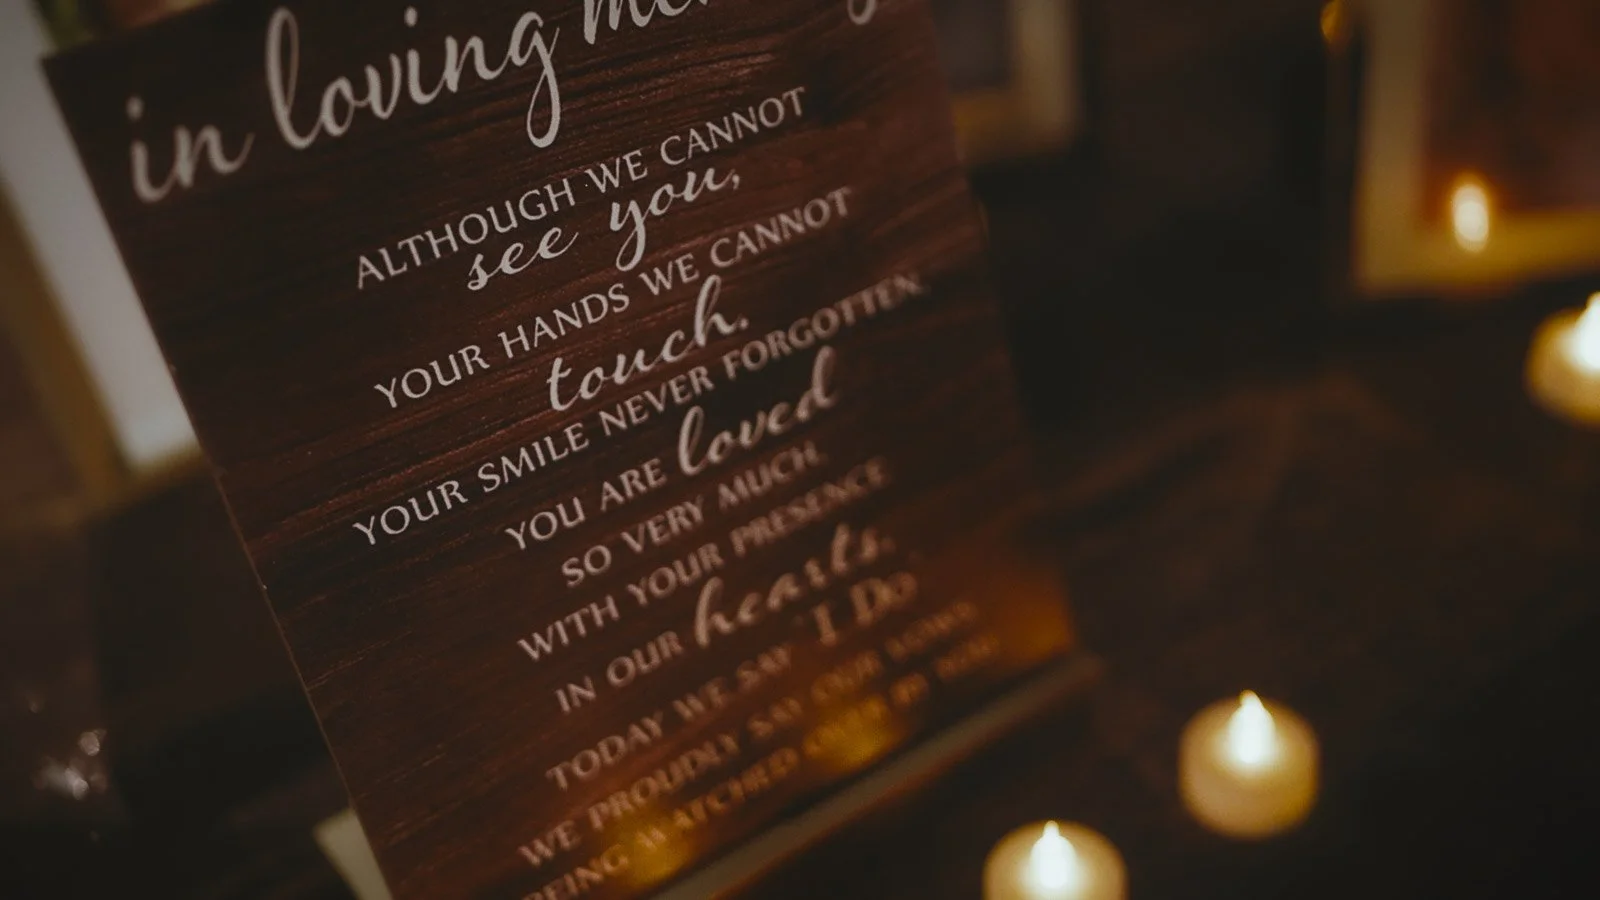 in loving
ALTHOUGH WE CANNOT
see you,
YOUR HANDS WE CANNOT
touch.
YOUR SMILE NEVER FORGOTTEN.
YOU ARE loved
SO VERY MUCH.
WITH YOUR PRESENCE
IN OUR hearts.
TODAY WE SAY "I Do
WE PROUDLY SAY OUR VOWS
BEING WATCHED OVER BY YOU